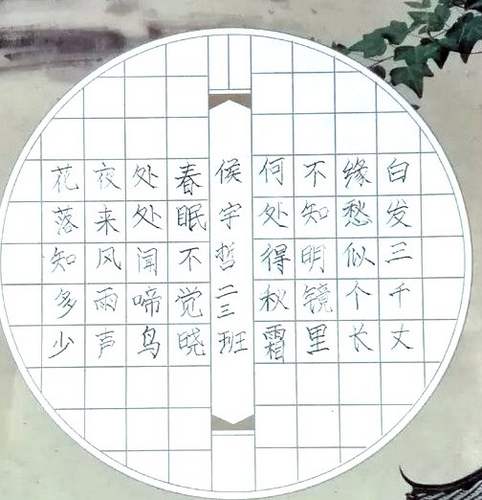 白发三千丈
缘愁似个长
不知明镜里
何处得秋霜
侯宇哲二三班
春眠不觉晓
处处闻啼鸟
夜来风雨声
花落知多少